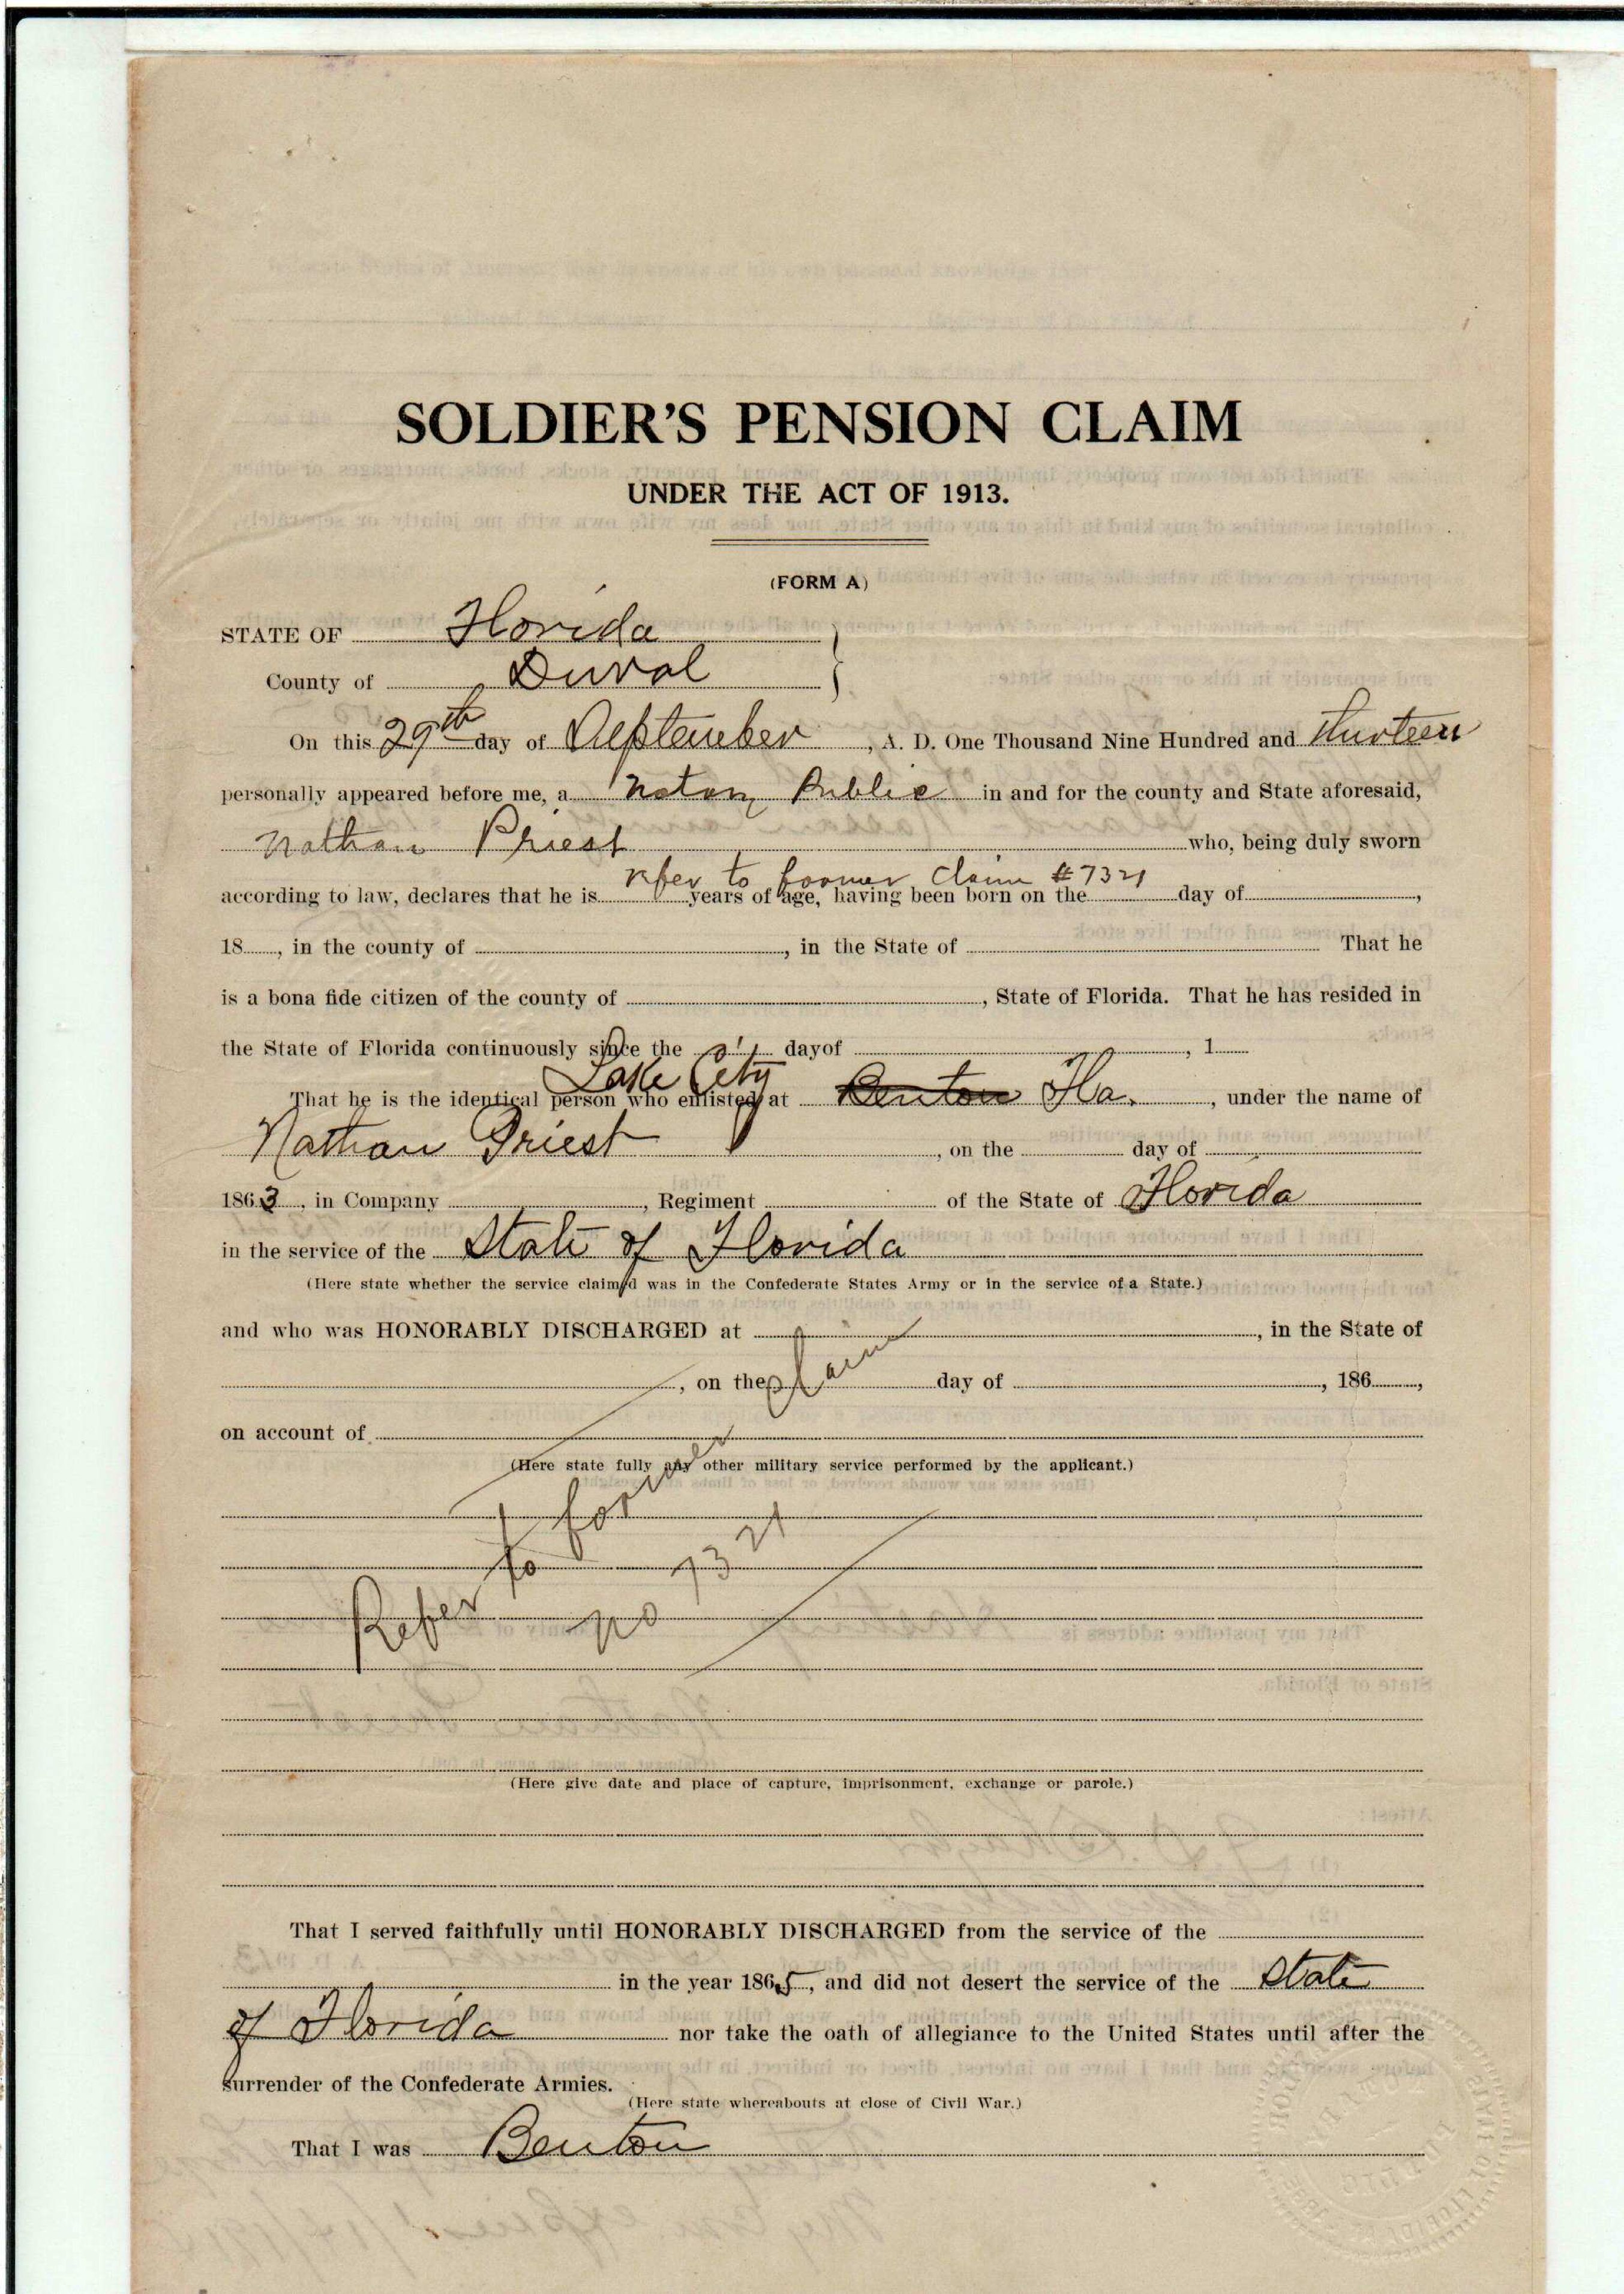 SOLDIER'S PENSION CLAIM
UNDER THE ACT OF 1913.
(FORM A)
STATE OF Florida
County of Duval
On this 29th day of September, A. D. One Thousand Nine Hundred and Thirteen
personally appeared before me, a Notary Public in and for the county and State aforesaid,
Nathan Priest who, being duly sworn
refer to former claim #7321
according to law, declares that he is years of age, having been born on the day of ,
18 , in the county of , in the State of That he
is a bona fide citizen of the county of , State of Florida. That he has resided in
the State of Florida continuously since the day of , 1
Lake City
That he is the identical person who enlisted at Benton Fla. , under the name of
Nathan Priest , on the day of
1863 , in Company , Regiment of the State of Florida
in the service of the State of Florida
(Here state whether the service claimed was in the Confederate States Army or in the service of a State.)
and who was HONORABLY DISCHARGED at , in the State of
, on the day of , 186 ,
on account of
(Here state fully any other military service performed by the applicant.)
Refer to former claim
no 7321
(Here give date and place of capture, imprisonment, exchange or parole.)
That I served faithfully until HONORABLY DISCHARGED from the service of the
in the year 1865, and did not desert the service of the State
of Florida nor take the oath of allegiance to the United States until after the
surrender of the Confederate Armies.
(Here state whereabouts at close of Civil War.)
That I was Benton